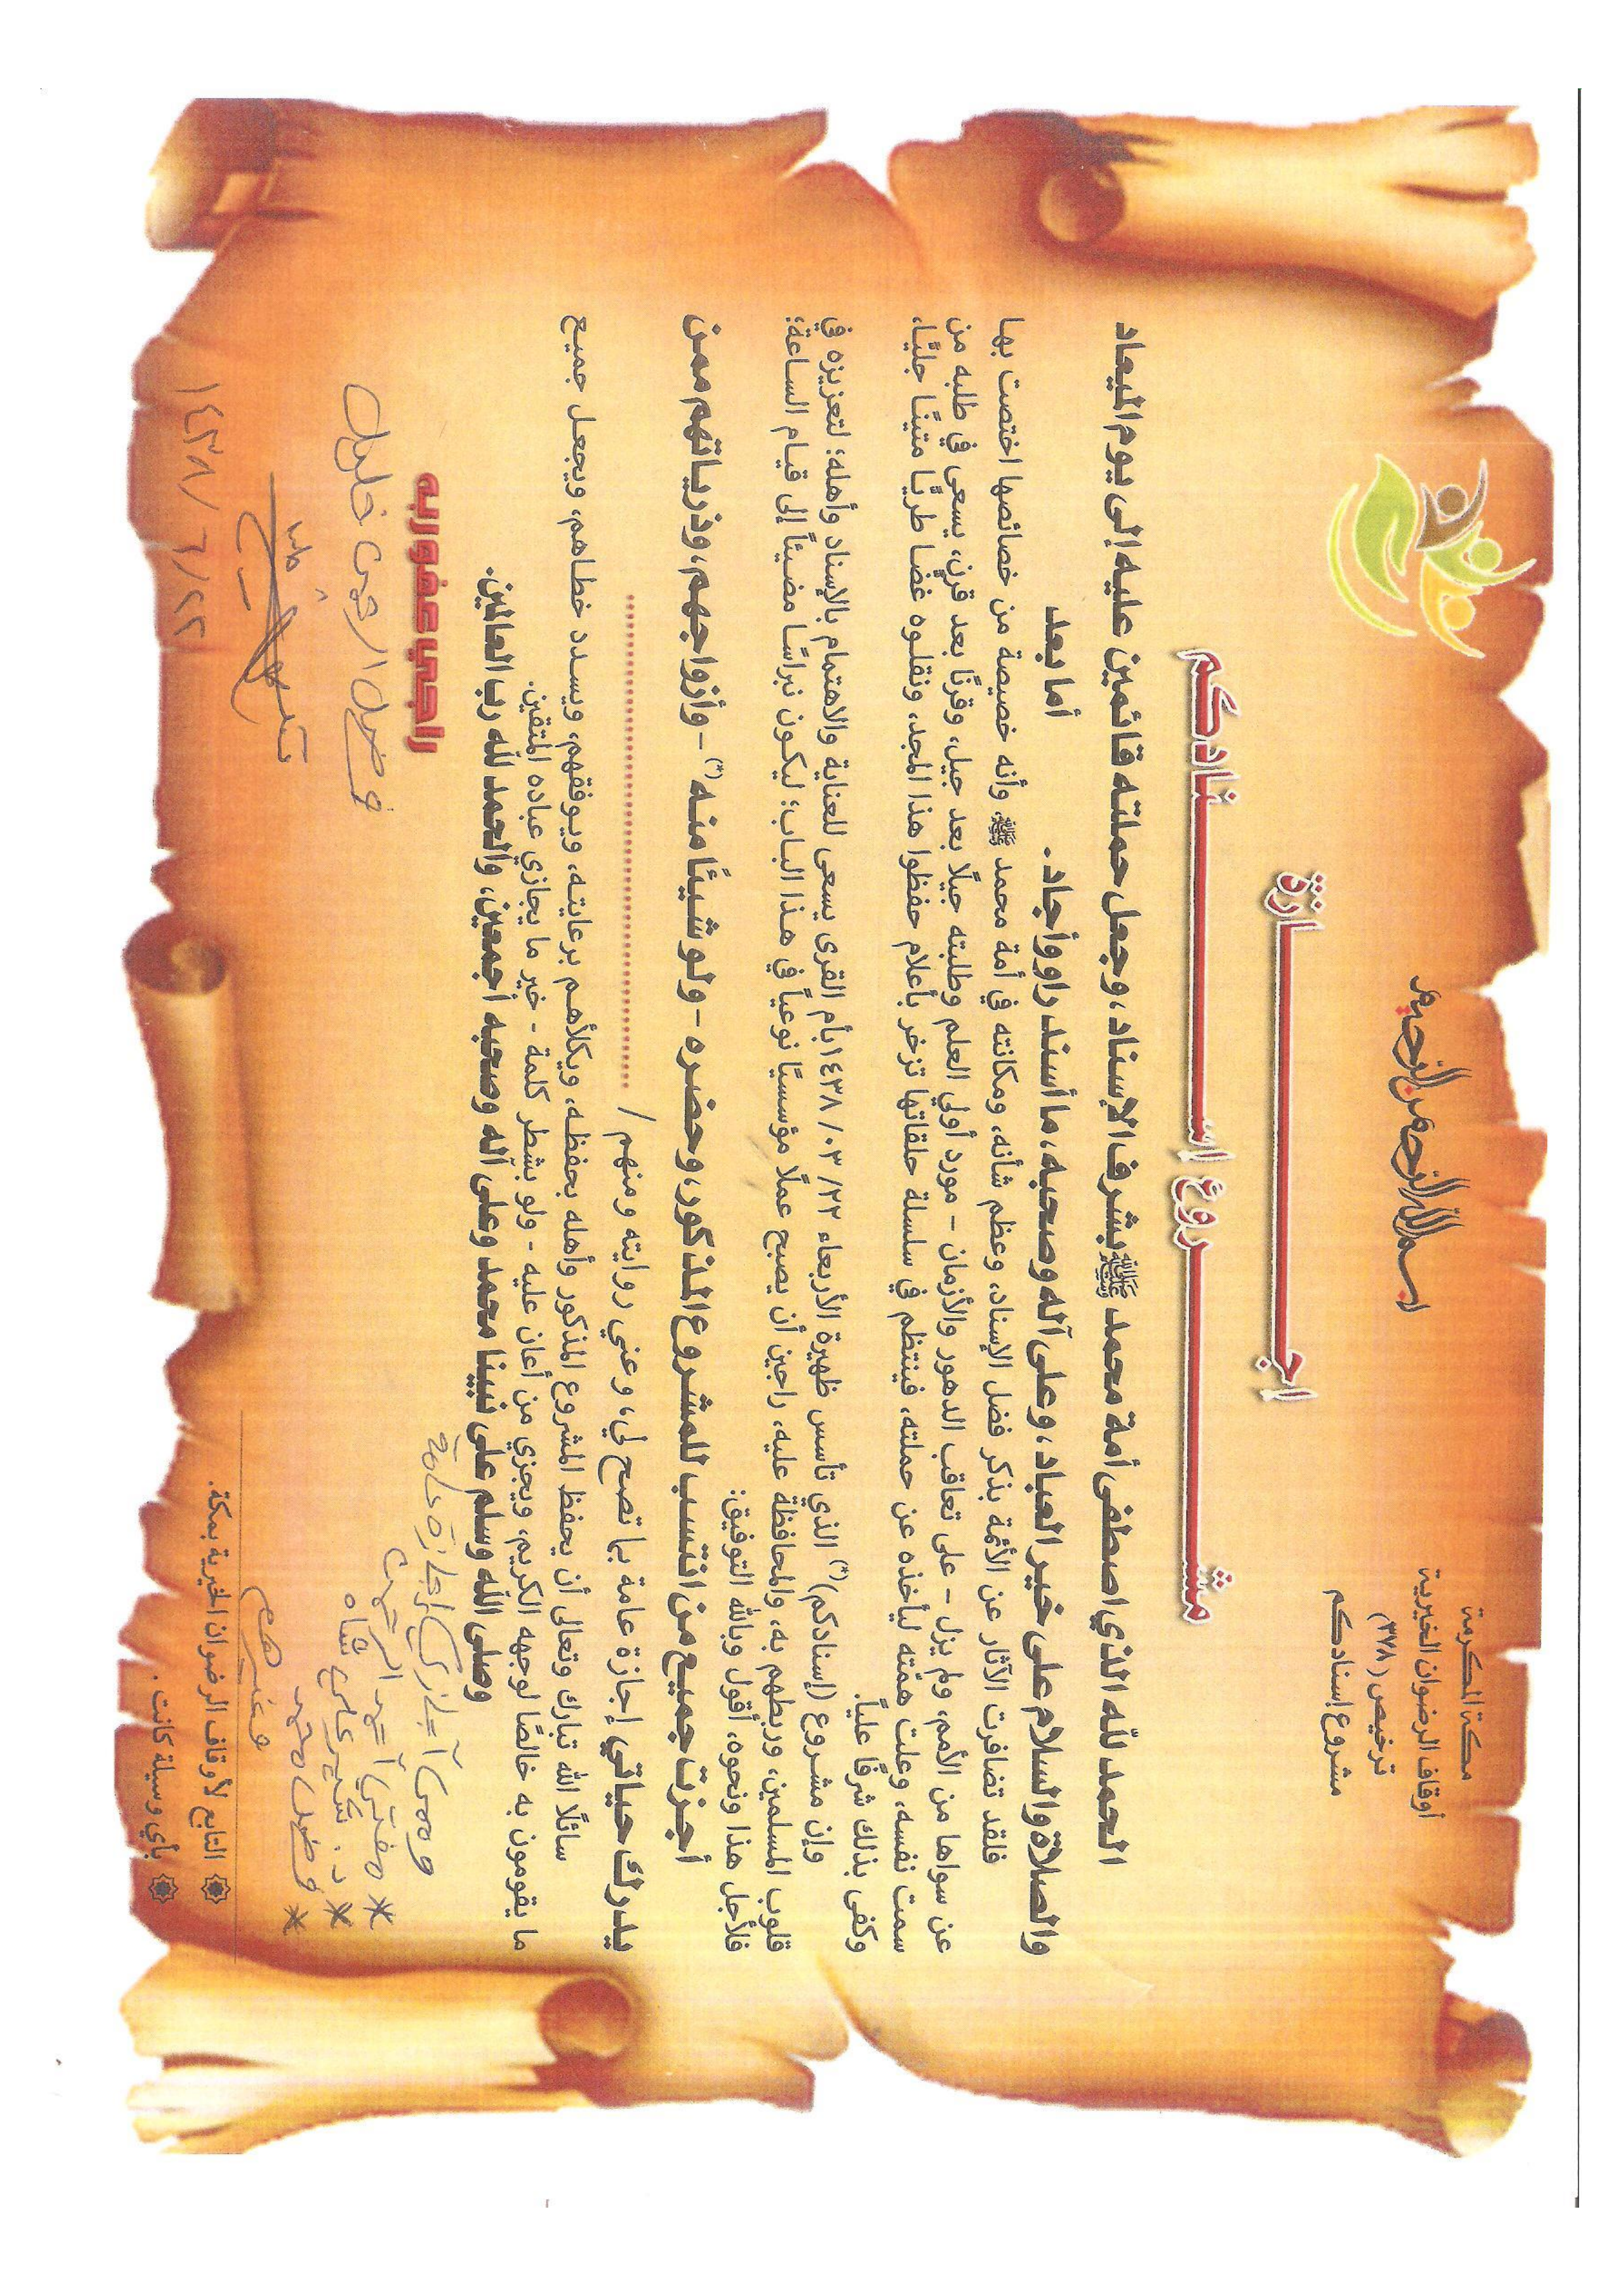 مكة المكرمة
أوقاف الرضوان الخيرية
ترخيص (٣٧٨)
مشروع إسنادكم
بسم الله الرحمن الرحيم
اجـــــازة
مشـــــروع إســـــنادكم
الحمد لله الذي اصطفى أمة محمد ﷺ بشرف الإسناد، وجعل حملته قائمين عليه إلى يوم الميعاد
والصلاة والسلام على خير العباد، وعلى آله وصحبه، ما أسند راو وأجاد.
أما بعد
فلقد تضافرت الآثار عن الأئمة بذكر فضل الإسناد، وعظم شأنه، ومكانته في أمة محمد ﷺ وأنه خصيصة من خصائصها اختصت بها
عن سواها من الأمم، ولم يزل - على تعاقب الدهور والأزمان - مورد أولي العلم وطلبته جيلًا بعد جيل، وقرنًا بعد قرن، يسعى في طلبه من
سمت نفسه، وعلت همّته ليأخذه عن حملته، فينتظم في سلسلة حلقاتها تزخر بأعلام حفظوا هذا المجد، ونقلوه غضا طريًا متينًا جليًا،
وكفى بذلك شرفًا عليًا.
وإن مشروع (إسنادكم)(*) الذي تأسس ظهيرة الأربعاء ٢٢/ ٠٣/ ١٤٣٨ بأم القرى يسعى للعناية والاهتمام بالإسناد وأهله؛ لتعزيزه في
قلوب المسلمين، وربطهم به، والمحافظة عليه، راجين أن يصبح عملًا مؤسسيًا نوعياً في هذا الباب؛ ليكون نبراسًا مضيئاً إلى قيام الساعة؛
فلأجل هذا ونحوه، أقول وبالله التوفيق:
أجزت جميع من انتسب للمشروع المذكور، وحضره - ولو شيئًا منه (*) - وأزواجهم، وذرياتهم ممن
يدرك حياتي إجازة عامة بما تصح لي، وعني روايته ومنهم / ..............................
سائلًا الله تبارك وتعالى أن يحفظ المشروع المذكور وأهله بحفظه، ويكلأهم برعايته، ويوفقهم، ويسدد خطاهم، ويجعل جميع
ما يقومون به خالصًا لوجهه الكريم، ويجزي من أعان عليه - ولو بشطر كلمة - خير ما يجازي عباده المتقين.
وصلى الله وسلم على نبينا محمد وعلى آله وصحبه أجمعين، والحمد لله رب العالمين.
راجي عفو ربه
فضل الرحمن خليل
١٤٣٨/ ٦/ ٢٢
وممن أجازني إجازة عامة
* مفتي أحمد الرحمن
* د. شير علي شاه
* فضل محمد
وغيرهم
التابع لأوقاف الرضوان الخيرية بمكة.
بأي وسيلة كانت.